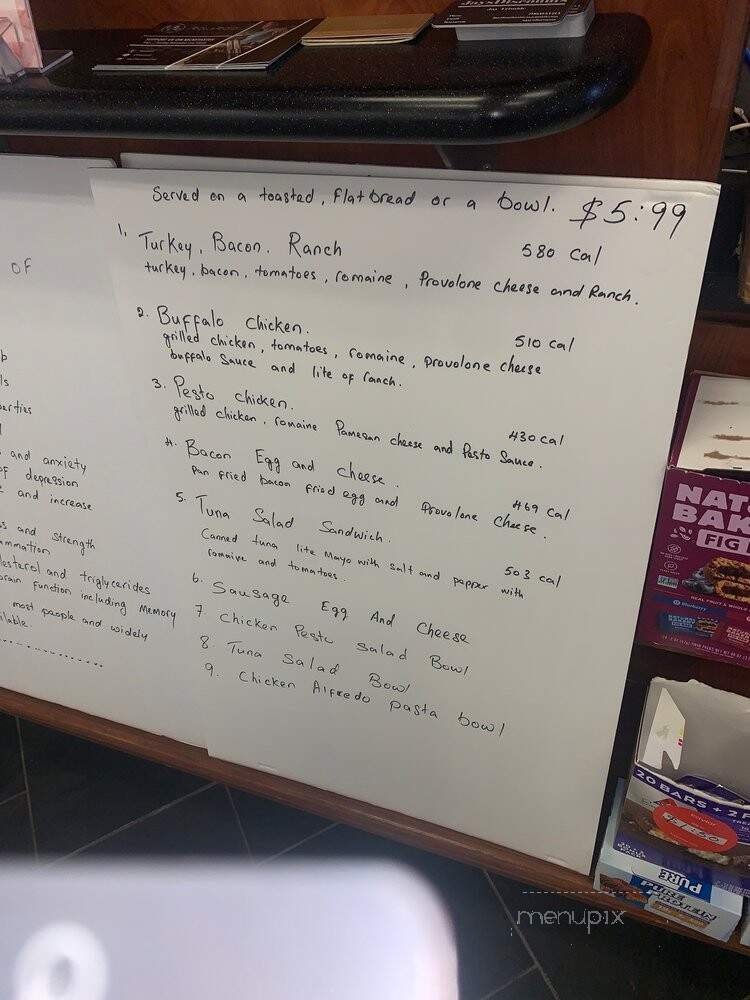 Served on a toasted, Flat bread or a bowl. $5:99
1, Turkey, Bacon. Ranch 580 Cal
turkey, bacon, tomatoes, romaine, Provolone cheese and Ranch.
2. Buffalo Chicken. 510 cal
grilled chicken, tomatoes, romaine, provolone cheese
buffalo Sauce and lite of ranch.
3. Pesto chicken. 430 cal
grilled chicken, romaine Parmesan cheese and Pesto Sauce.
4. Bacon Egg and cheese. 469 cal
Pan fried bacon fried egg and Provolone Cheese.
5. Tuna Salad Sandwich. 503 cal
Canned tuna lite Mayo with salt and pepper with
romaine and tomatoes.
6. Sausage Egg And Cheese
7. Chicken Pesto Salad Bowl
8. Tuna Salad Bowl
9. Chicken Alfredo pasta bowl
OF
and anxiety
of depression
and increase
and strength
and triglycerides
function including Memory
most people and widely
NAT
BAK
FIG
20 BARS + 2
PURE
menupix